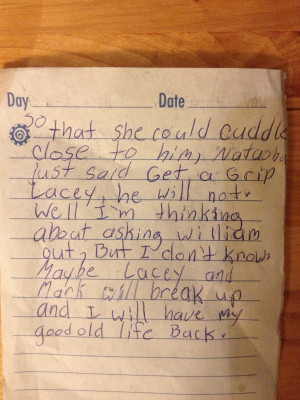 Day Date
So
that she could cuddle
close to him, Natasha
just said Get a Grip
Lacey, he will not.
Well I'm thinking
about asking william
out, But I don't know.
Maybe Lacey and
Mark will break up
and I will have my
good old life Back.